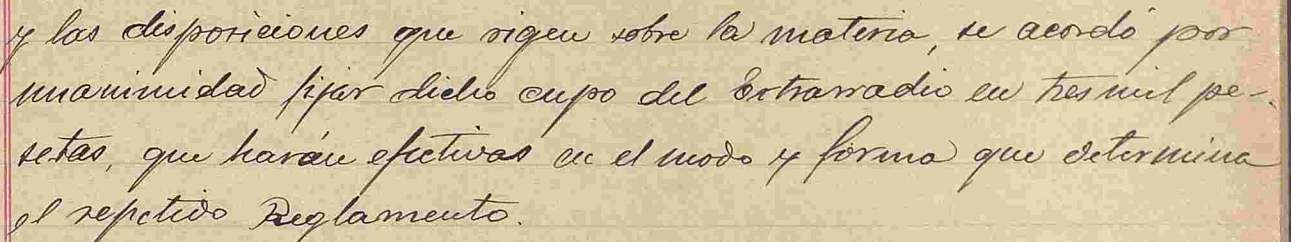 y las disposiciones que rigen sobre la materia, se acordó por
unanimidad fijar dicho cupo del Extrarradio en tres mil pe-
setas, que harán efectivas en el modo y forma que determina
el repetido Reglamento.